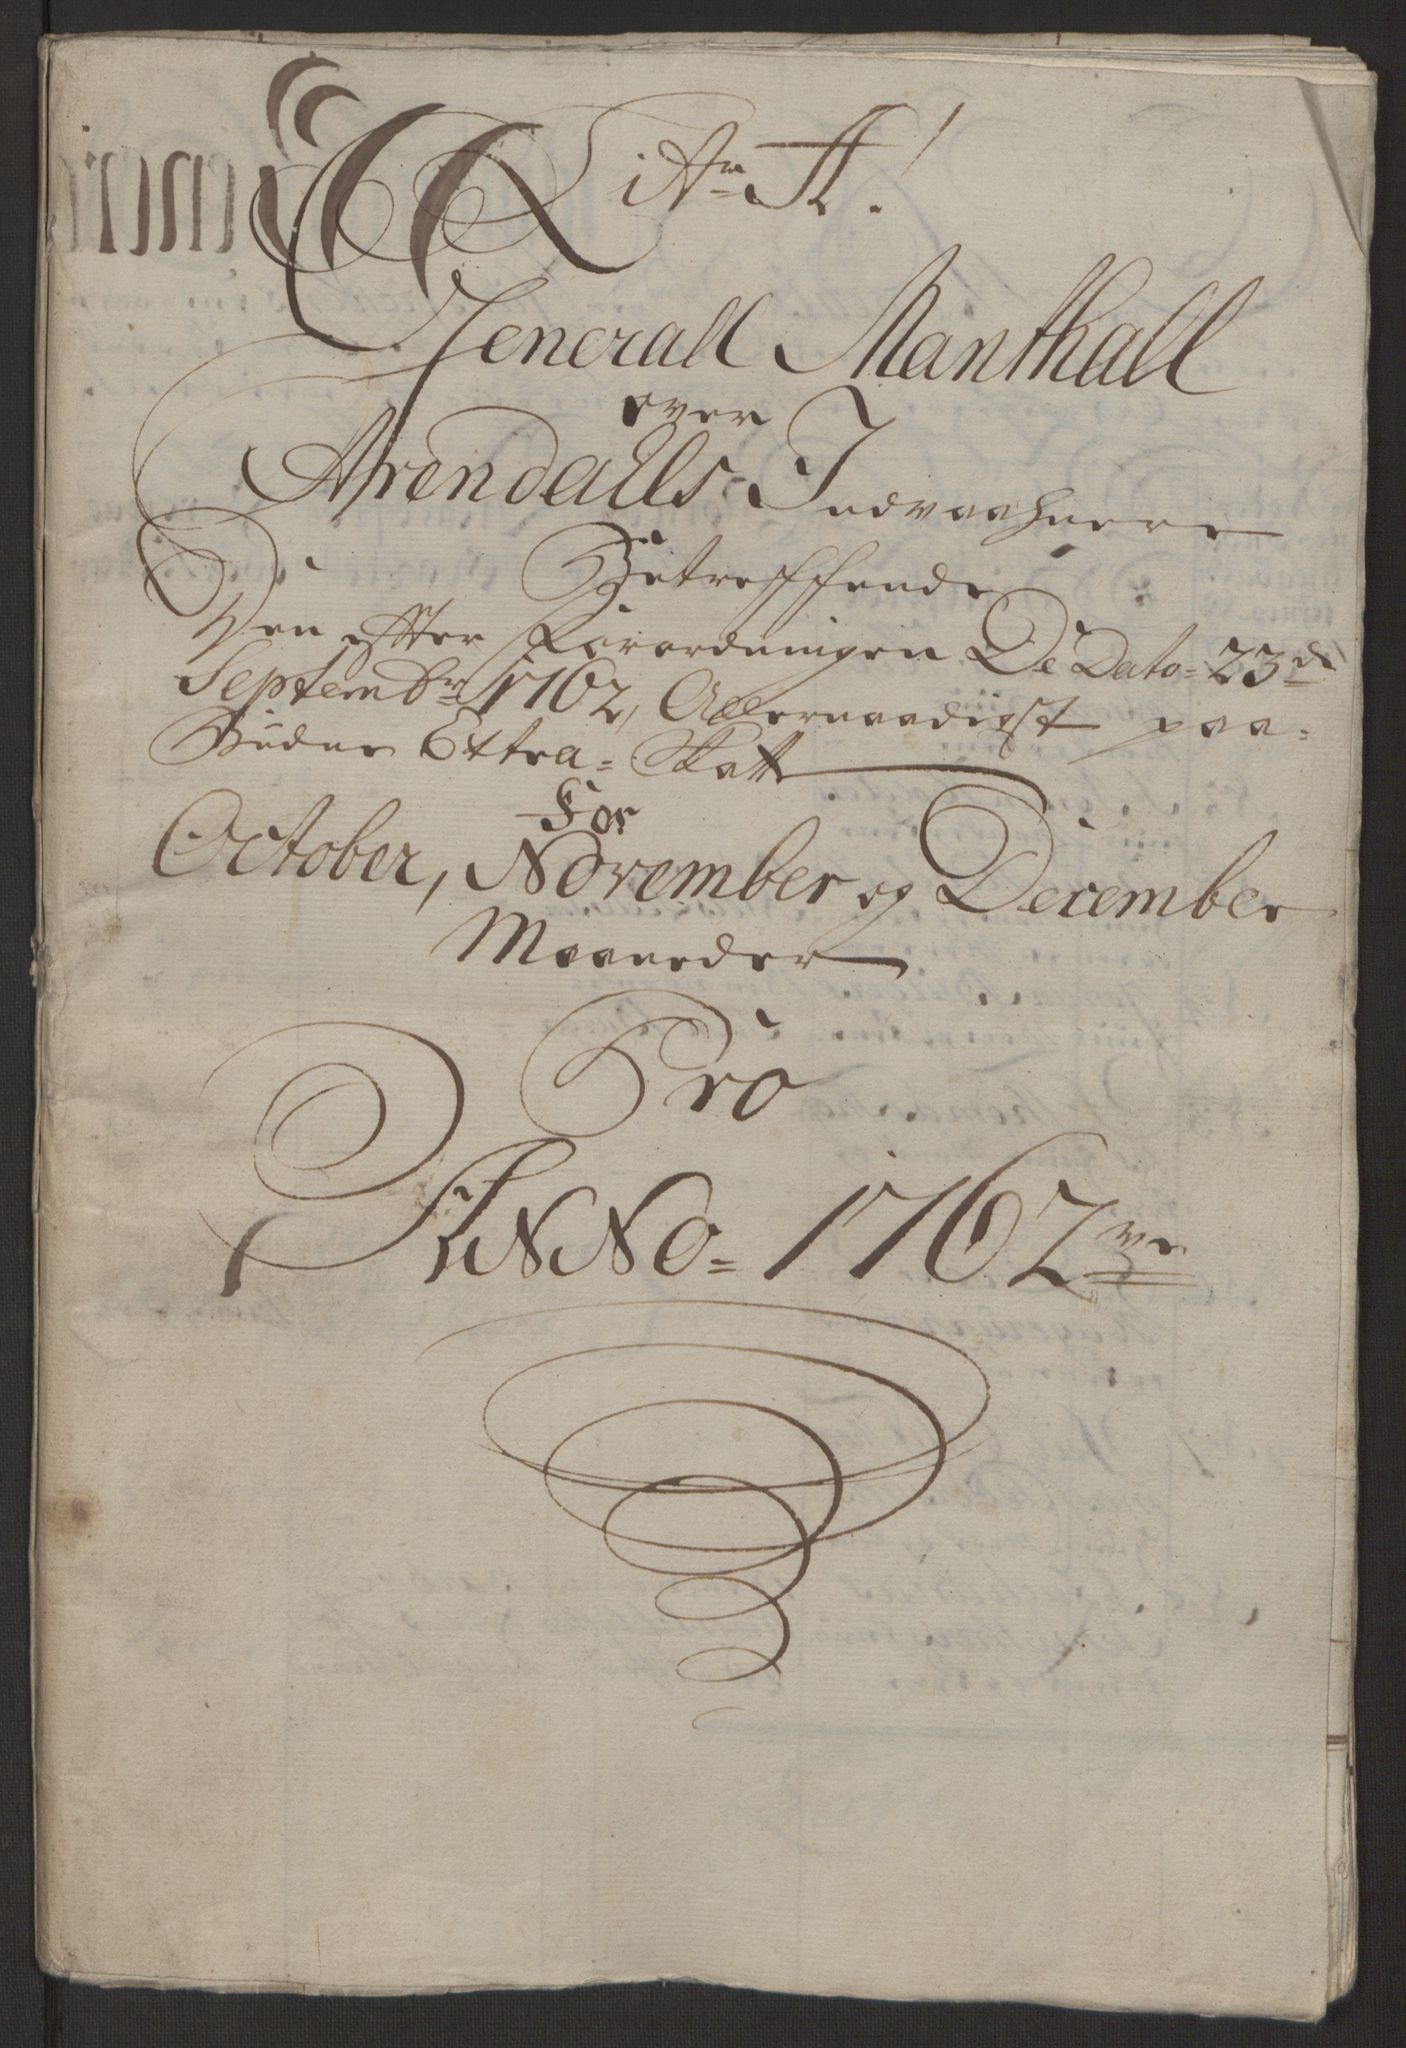 Litr A!
Generall Manthall
over
Arendalls Indvaahnere
Betreffende
Den efter Forordningen De Dato 23de
Septembr 1762, Allernaadigst paa-
budne Extra-Skatt
For
October, November og December
Maaneder
Pro
ANNO 1762